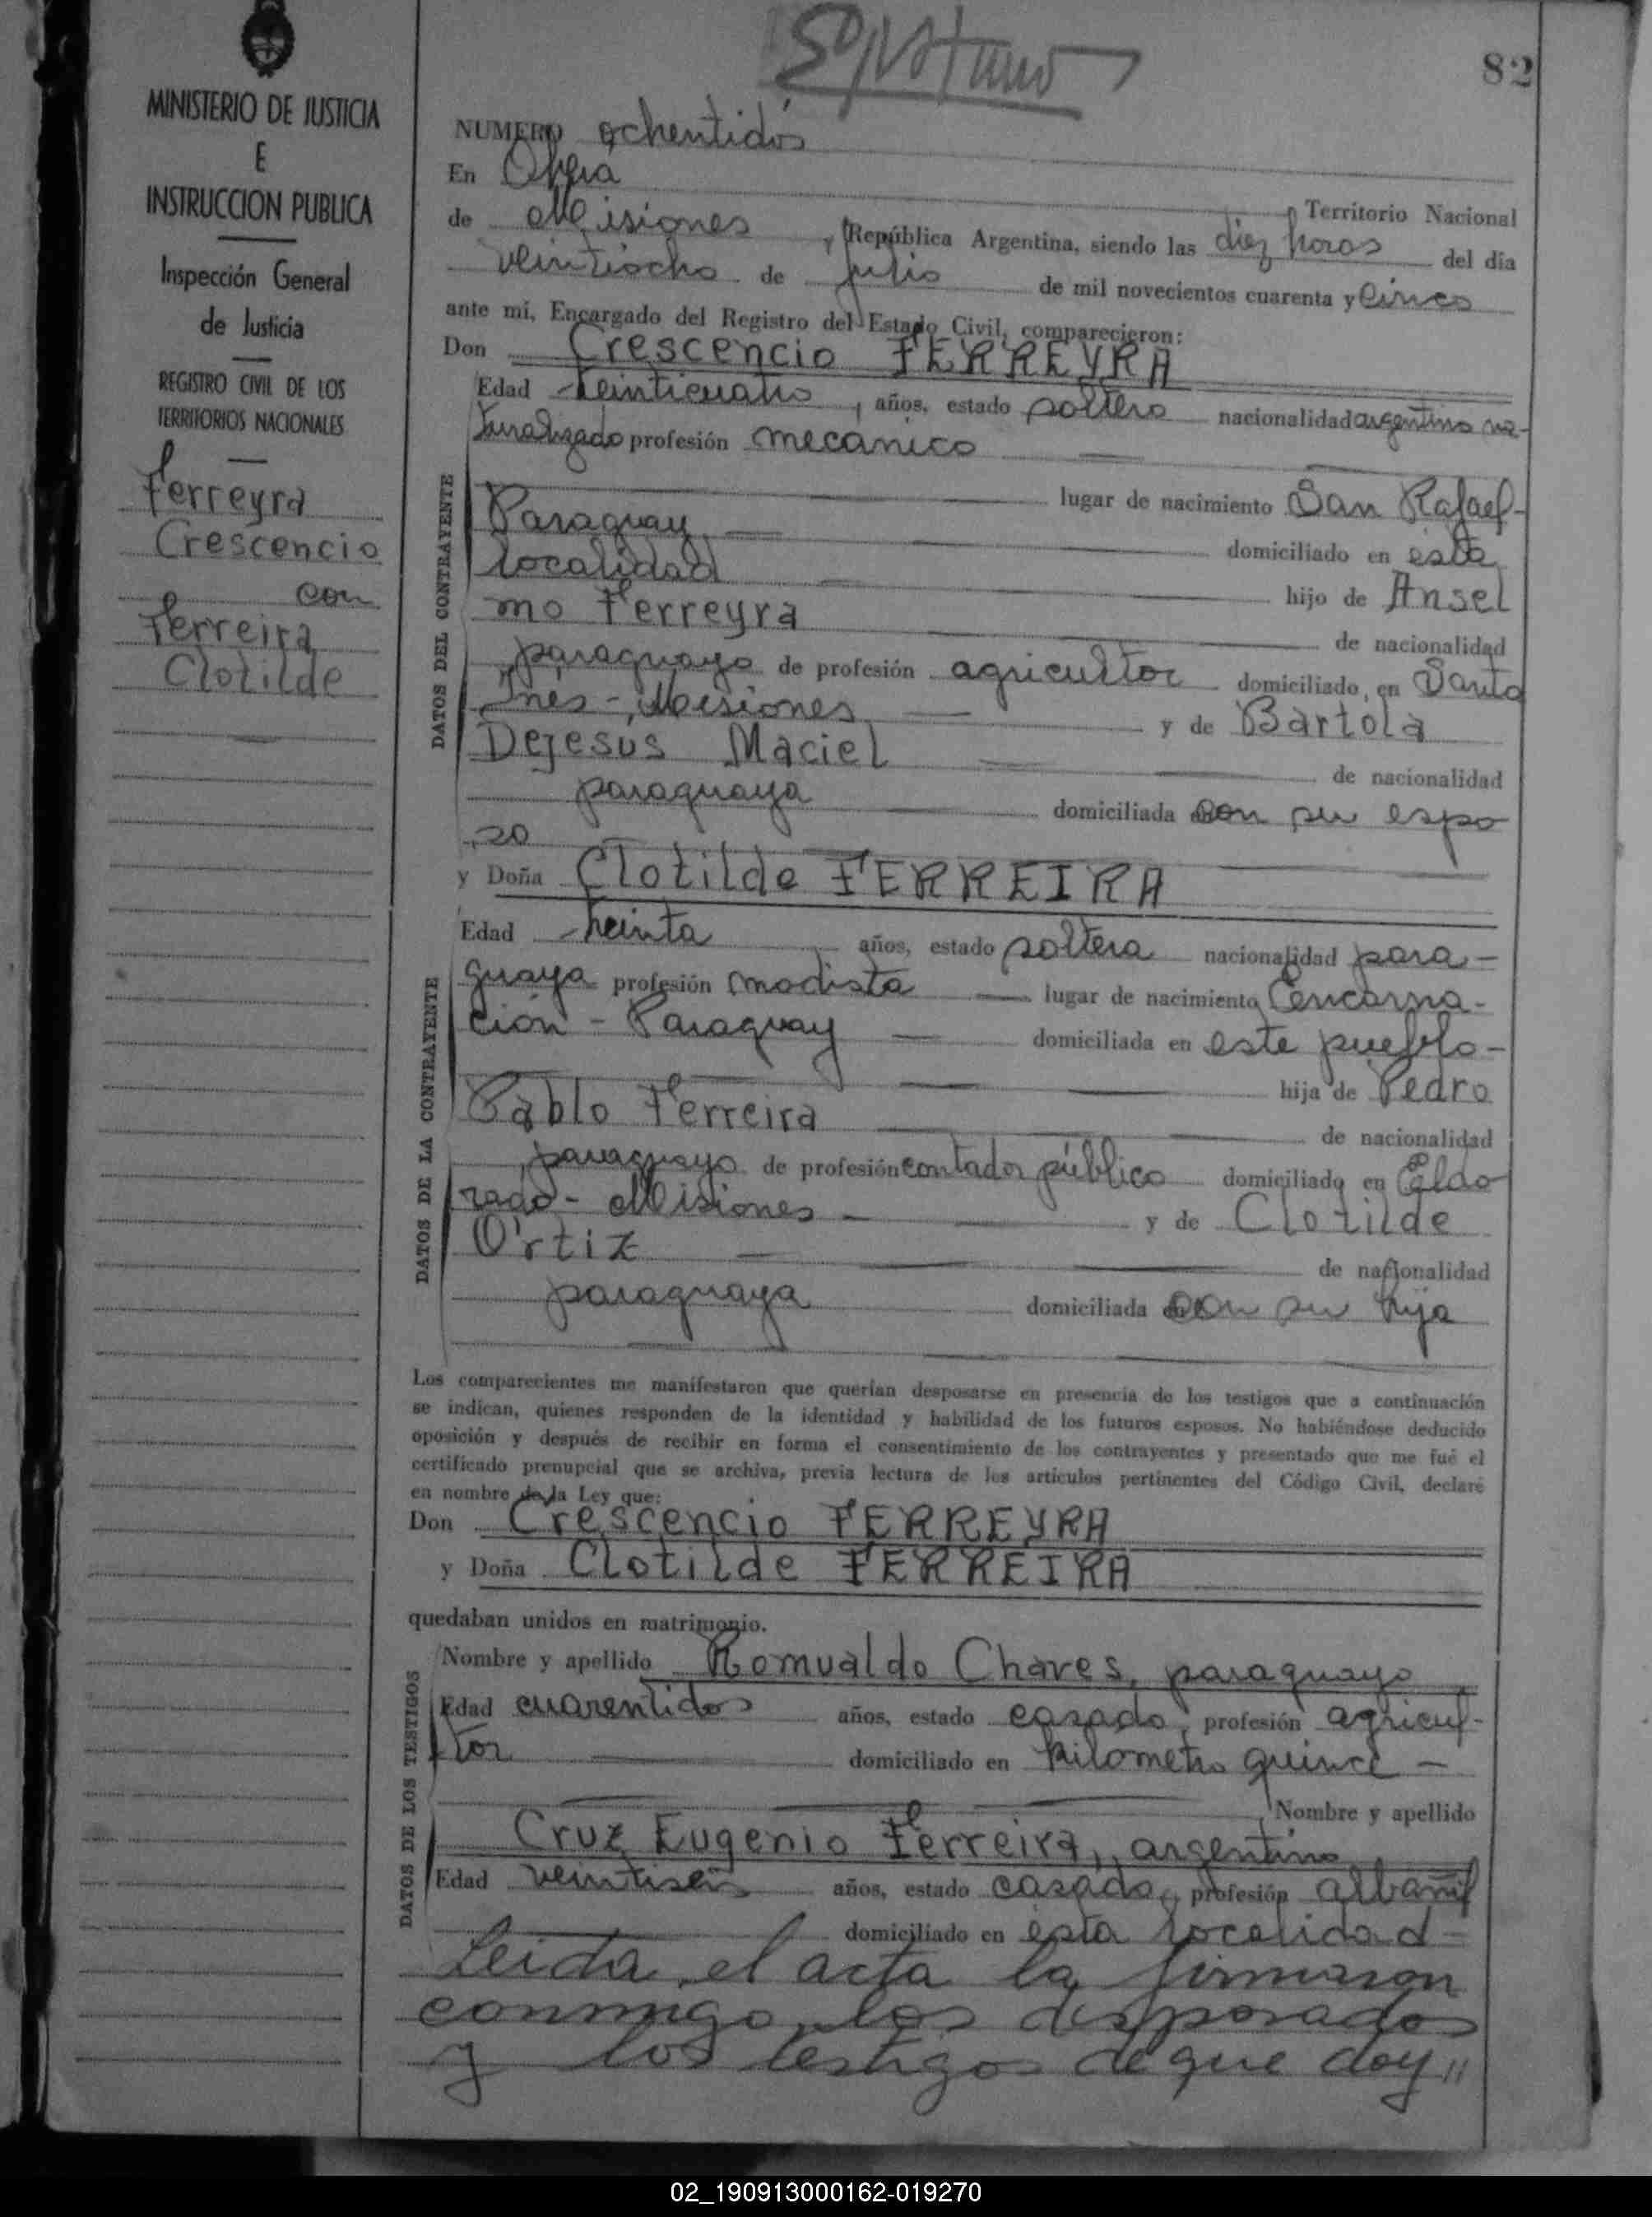 82
MINISTERIO DE JUSTICIA
E
INSTRUCCION PUBLICA
Inspección General
de Justicia
REGISTRO CIVIL DE LOS
TERRITORIOS NACIONALES
Ferreyra
Crescencio
con
Ferreira
Clotilde
NUMERO ochentidós
En Oberá
Territorio Nacional
de Misiones, República Argentina, siendo las diez horas del día
veintiocho de julio de mil novecientos cuarenta y cinco
ante mí, Encargado del Registro del Estado Civil, comparecieron:
Don Crescencio FERREYRA
DATOS DEL CONTRAYENTE
Edad treinticuatro, años, estado soltero nacionalidad argentino na-
turalizado profesión mecánico
lugar de nacimiento San Rafael-
Paraguay
domiciliado en esta
localidad
hijo de Ansel
mo Ferreyra
de nacionalidad
paraguayo de profesión agricultor domiciliado en Santa
Inés-, Misiones y de Bartola
Dejesus Maciel
de nacionalidad
paraguaya domiciliada con su espo
so
y Doña Clotilde FERREIRA
DATOS DE LA CONTRAYENTE
Edad treinta años, estado soltera nacionalidad para-
guaya profesión modista lugar de nacimiento Encarna-
ción - Paraguay domiciliada en este pueblo-
hija de Pedro
Pablo Ferreira
de nacionalidad
paraguayo de profesión contador público domiciliado en Eldo
rado - Misiones y de Clotilde
Ortiz
de nacionalidad
paraguaya domiciliada con su hija
Los comparecientes me manifestaron que querían desposarse en presencia de los testigos que a continuación
se indican, quienes responden de la identidad y habilidad de los futuros esposos. No habiéndose deducido
oposición y después de recibir en forma el consentimiento de los contrayentes y presentado que me fué el
certificado prenupcial que se archiva, previa lectura de los artículos pertinentes del Código Civil, declaré
en nombre de la Ley que:
Don Crescencio FERREYRA
y Doña Clotilde FERREIRA
quedaban unidos en matrimonio.
DATOS DE LOS TESTIGOS
Nombre y apellido Romualdo Chaves, paraguayo
Edad cuarentidos años, estado casado, profesión agricul-
tor domiciliado en kilometro quince -
Nombre y apellido
Cruz Eugenio Ferreira, argentino
Edad veintiseis años, estado casado, profesión albañil
domiciliado en esta localidad-
Leida el acta la firmaron
conmigo los desposados
y los testigos de que doy,,
02_190913000162-019270